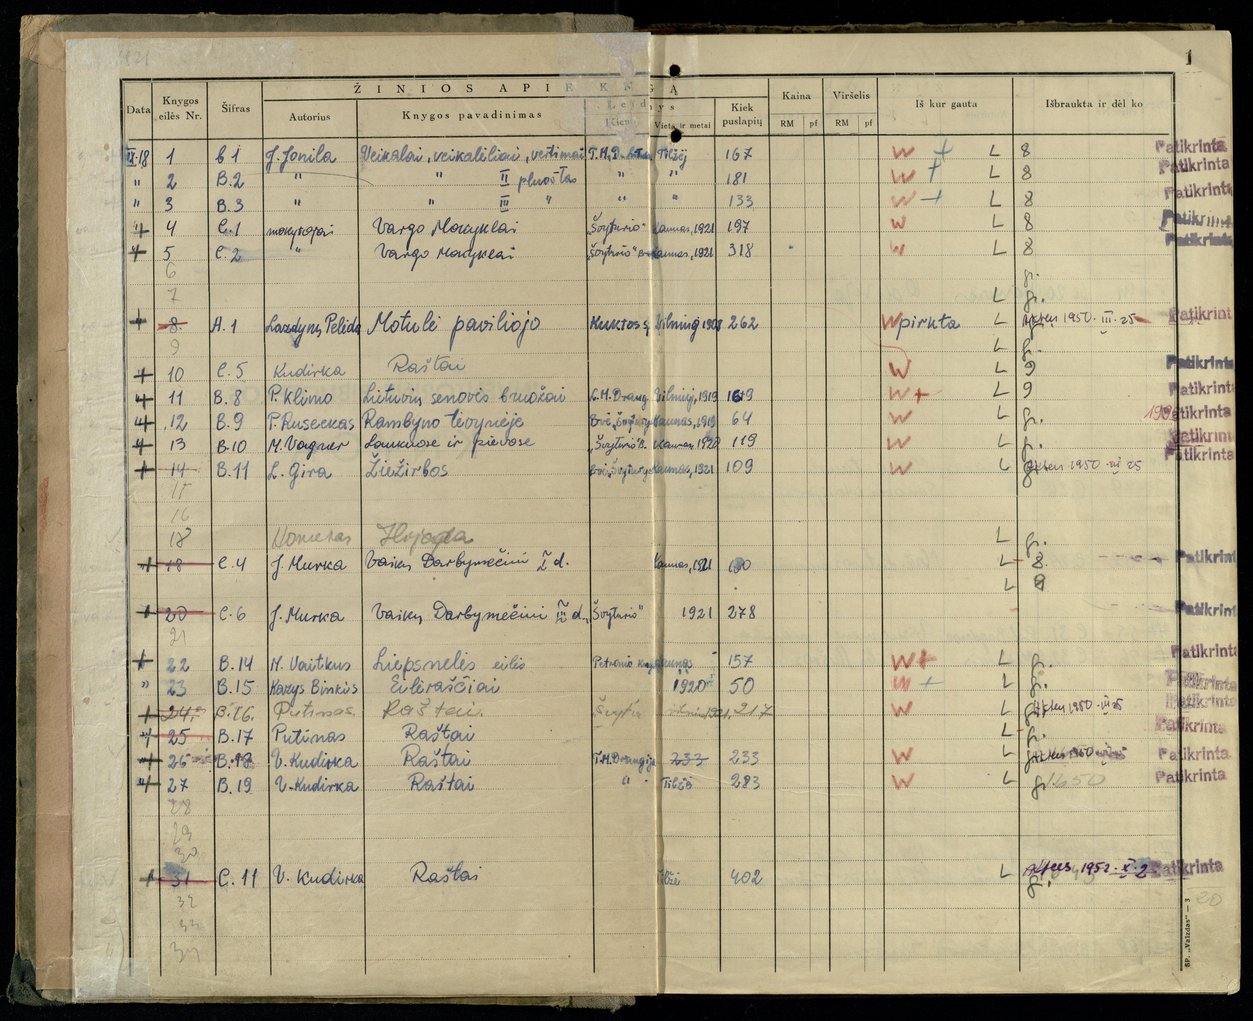 1
ŽINIOS APIE KNYGĄ
Data | Knygos eilės Nr. | Šifras | Autorius | Knygos pavadinimas | Vieta ir metai | Kiek puslapių | Kaina RM pf | Viršelis RM pf | Iš kur gauta | Išbraukta ir dėl ko
II-18 1 B 1 J. Jonila Veikalai, veikalėliai, vertimai Tilžėj 167 W + L 8 Patikrinta
" 2 B.2 " " II pluoštas " " 181 W + L 8 Patikrinta
" 3 B.3 " " III " " " 133 W + L 8 Patikrinta
4 C.1 mokytojai Vargo Mokyklai „Švyturio" Kaunas, 1921 197 W L 8
5 C.2 " Vargo Mokyklai „Švyturio" Kaunas, 1921 318 L 8 Patikrinta
6 gr.
7 L gr.
+ 8 A.1 Lazdynų Pelėda Motulė paviliojo Kuktos sp. Vilniuj 1908 262 W pirkta L 1950-III-25 Patikrinta
9 L gr.
+ 10 C.5 Kudirka Raštai W L 9 Patikrinta
+ 11 B.8 P. Klimo Lietuvių senovės bruožai Vilniuj, 1919 169 W + L 9 Patikrinta
12 B.9 P. Ruseckas Rambyno tėvynėje Kaunas, 1919 64 W L gr. Patikrinta
13 B.10 M. Vagner Laukuose ir pievose „Švyturio" B. Kaunas, 1920 119 gr. Patikrinta
+ 14 B.11 L. Gira Žiežirbos Kaunas, 1921 109 W L 1950-III-25 Patikrinta
15
16
18 L gr.
+ 18 C.4 J. Murka Vaikų Darbymečiui V d. Kaunas, 1921 L 8. Patikrinta
L 9
+ 20 C.6 J. Murka Vaikų Darbymečiui d. „Švyturio" 1921 278 Patikrinta
21
+ 22 B.14 M. Vaitkus Liepsnelės eilės Petronio Kaunas 157 W + L gr. Patikrinta
" 23 B.15 Kazys Binkis Eilėraščiai 1920 50 + L gr. Patikrinta
+ 24 B.16. Putinas. Raštai. 1921, 217 W L 1950-III-25 Patikrinta
+ 25 B.17 Putinas Raštai L gr. Patikrinta
26 B.18 V. Kudirka Raštai T.M.Draugija 233 233 W L gr. Patikrinta
27 B.19 V. Kudirka Raštai " Tilžė 283 W L gr. 1650 Patikrinta
28
29
30
+ 31 C.11 V. Kudirka Raštai Tilžė 402 L gr. 1952-X-2 Patikrinta
32
33
34
20
SP. „Vaizdas" — 3